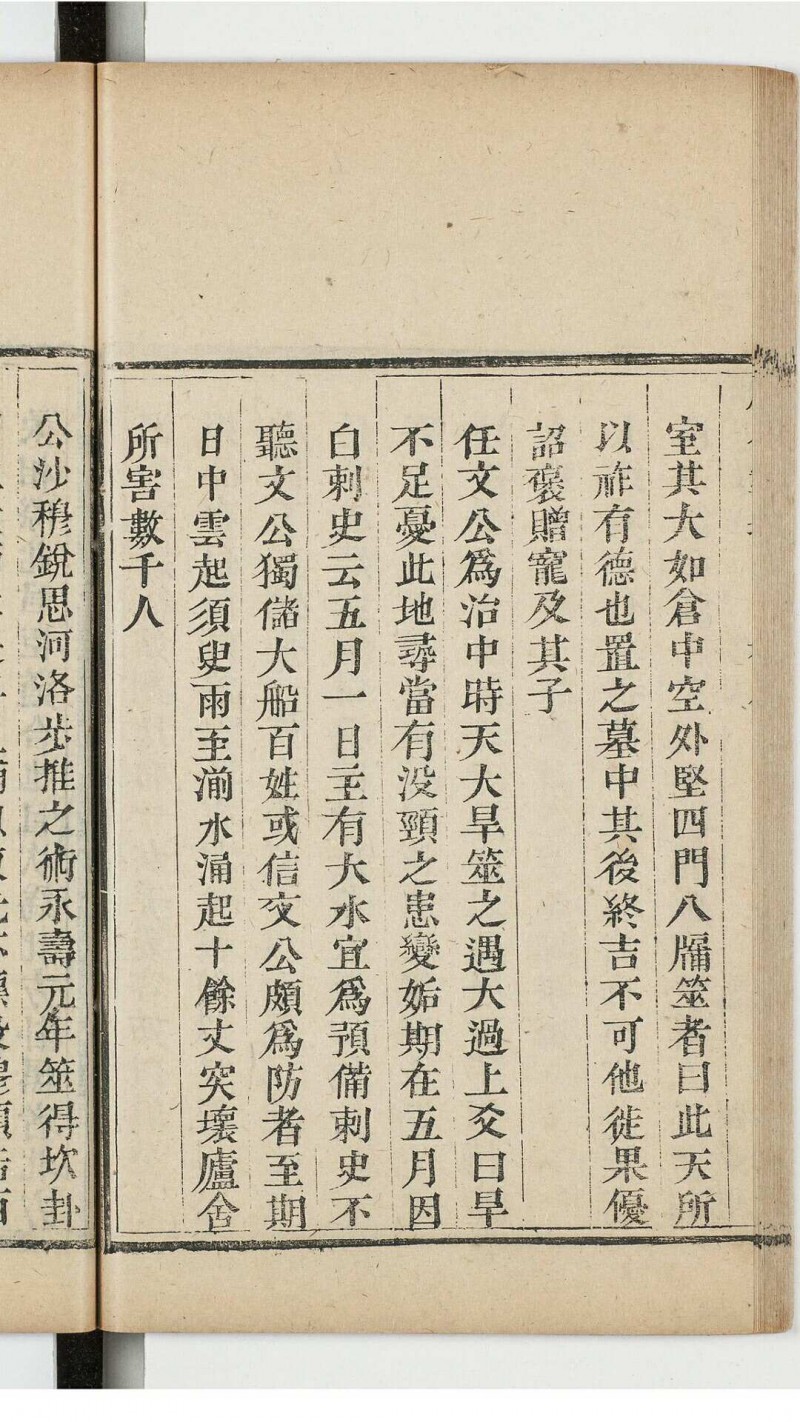 室其大如倉中空外堅四門八牖筮者曰此天所
以祚有德也置之墓中其後終吉不可他徙果優
詔褒贈寵及其子
任文公爲治中時天大旱筮之遇大過上爻曰旱
不足憂此地尋當有没頸之患變姤期在五月因
白刺史云五月一日主有大水宜爲預備刺史不
聽文公獨儲大船百姓或信文公頗爲防者至期
日中雲起須臾雨至湔水涌起十餘丈突壞廬舍
所害數千人
公沙穆銳思河洛步推之術永壽元年筮得坎卦